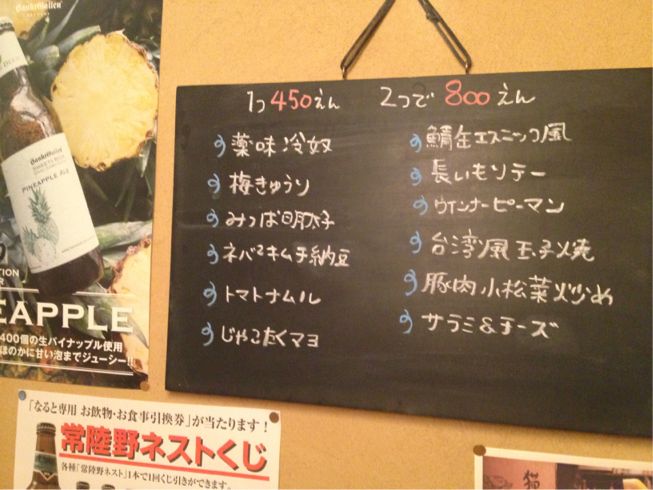 Sankt Gallen
Sankt Gallen
SWEETS BEER
PINEAPPLE ALE
EAPPLE
400個の生パイナップル使用
ほのかに甘い泡までジューシー!!
1つ450えん 2つで800えん
薬味冷奴
梅きゅうり
みつば明太子
ネバ2キムチ納豆
トマトナムル
じゃこたくマヨ
鯖缶エスニック風
長いもソテー
ウインナーピーマン
台湾風玉子焼
豚肉小松菜炒め
サラミ&チーズ
「なると専用 お飲物・お食事引換券」が当たります!
常陸野ネストくじ
各種「常陸野ネスト」1本で1回くじ引きができます。
猫